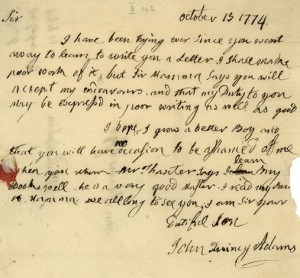 II 102
October 13 1774
Sir
I have been trying ever since you went
away to learn to write you a Letter I shall make
poor work of it, but Sir Mamma says you will
accept my endeavours and that my Duty to you
may be expressd in poor writing as well as good
I hope I grow a better Boy and
that you will have no occasion to be ashamed of me
learn
when you return Mr Thaxter says I my
Books well he is a very good Master I read my
to Mamma we all long to see you I am Sir your
Dutiful Son
John Quincy Adams